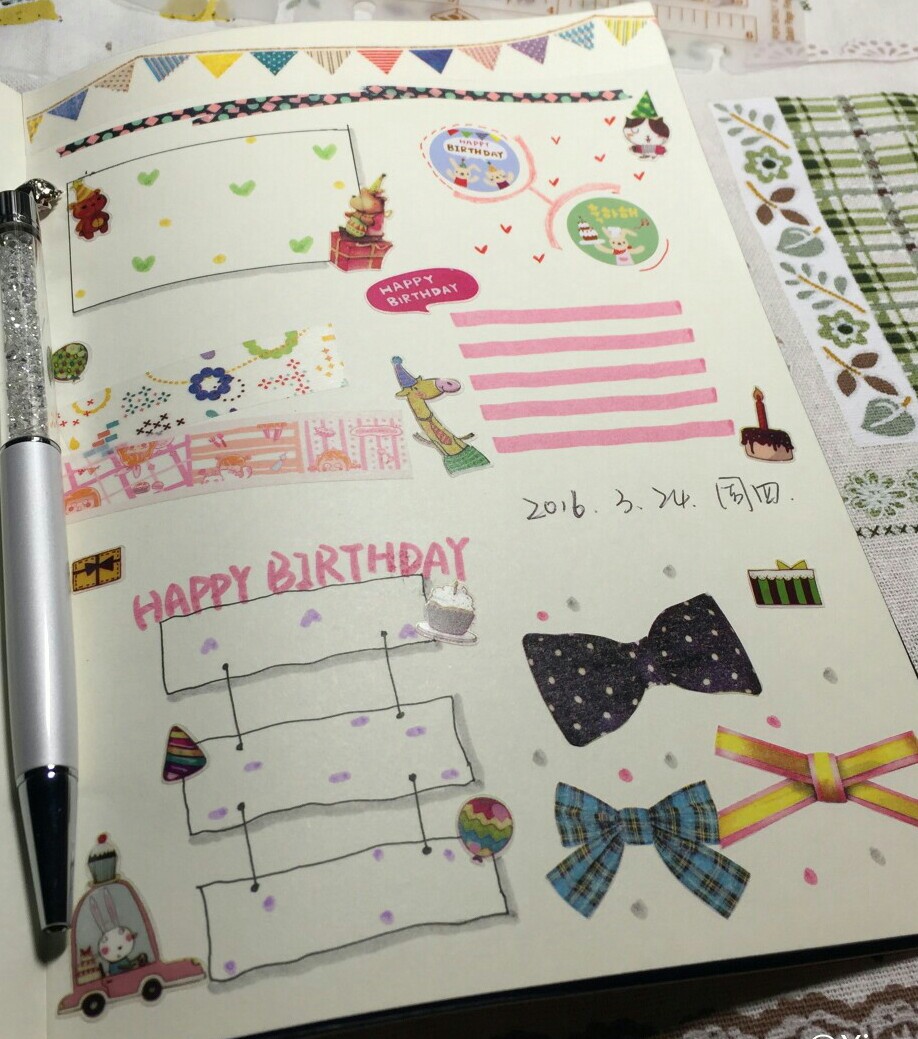 HAPPY
BIRTHDAY
축하해
HAPPY
BIRTHDAY
2016. 3. 24. 周四.
HAPPY BIRTHDAY